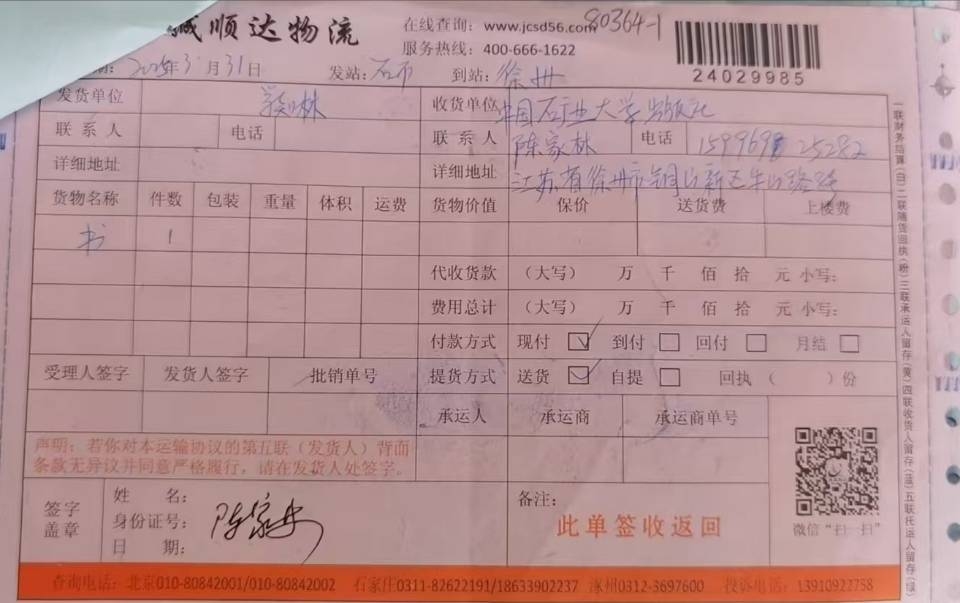 诚顺达物流 在线查询：www.jcsd56.com 80364-1
服务热线：400-666-1622
24029985
期：2025年3月31日 发站：石市 到站：徐州
发货单位 收货单位 中国矿业大学出版社
联系人 电话 联系人 陈家林 电话
详细地址 详细地址 江苏省徐州市铜山新区
货物名称 件数 包装 重量 体积 运费 货物价值 保价 送货费 上楼费
书 1
代收货款 （大写） 万 千 佰 拾 元 小写：
费用总计 （大写） 万 千 佰 拾 元 小写：
付款方式 现付 ☑ 到付 □ 回付 □ 月结 □
受理人签字 发货人签字 批销单号 提货方式 送货 ☑ 自提 □ 回执（ ）份
承运人 承运商 承运商单号
声明：若你对本运输协议的第五联（发货人）背面
条款无异议并同意严格履行，请在发货人处签字。
签字
盖章
姓 名：
身份证号：
日 期：
备注：
此单签收返回
微信“扫一扫”
查询电话：北京010-80842001/010-80842002 石家庄0311-82622191/18633902237 涿州0312-3697600 投诉电话：13910922758
一联财务结算(白)二联随货回执(粉)三联承运人留存(黄)四联收货人留存(蓝)五联托运人留存(绿)